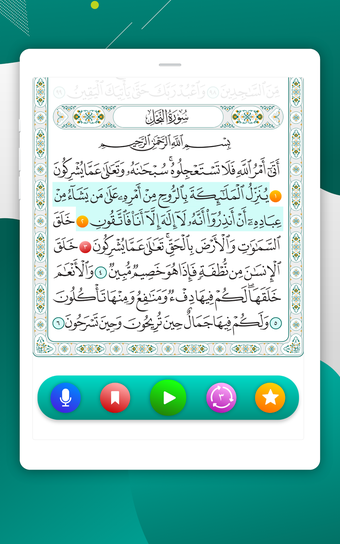 مِّنَ ٱلسَّٰجِدِينَ ٩٨ وَٱعْبُدْ رَبَّكَ حَتَّىٰ يَأْتِيَكَ ٱلْيَقِينُ ٩٩
سُورَةُ النَّحْلِ
بِسْمِ ٱللَّهِ ٱلرَّحْمَٰنِ ٱلرَّحِيمِ
أَتَىٰٓ أَمْرُ ٱللَّهِ فَلَا تَسْتَعْجِلُوهُ سُبْحَٰنَهُۥ وَتَعَٰلَىٰ عَمَّا يُشْرِكُونَ
١ يُنَزِّلُ ٱلْمَلَٰٓئِكَةَ بِٱلرُّوحِ مِنْ أَمْرِهِۦ عَلَىٰ مَن يَشَآءُ مِنْ
عِبَادِهِۦٓ أَنْ أَنذِرُوٓا۟ أَنَّهُۥ لَآ إِلَٰهَ إِلَّآ أَنَا۠ فَٱتَّقُونِ ٢ خَلَقَ
ٱلسَّمَٰوَٰتِ وَٱلْأَرْضَ بِٱلْحَقِّ تَعَٰلَىٰ عَمَّا يُشْرِكُونَ ٣ خَلَقَ
ٱلْإِنسَٰنَ مِن نُّطْفَةٍ فَإِذَا هُوَ خَصِيمٌ مُّبِينٌ ٤ وَٱلْأَنْعَٰمَ
خَلَقَهَا لَكُمْ فِيهَا دِفْءٌ وَمَنَٰفِعُ وَمِنْهَا تَأْكُلُونَ
٥ وَلَكُمْ فِيهَا جَمَالٌ حِينَ تُرِيحُونَ وَحِينَ تَسْرَحُونَ ٦
٣